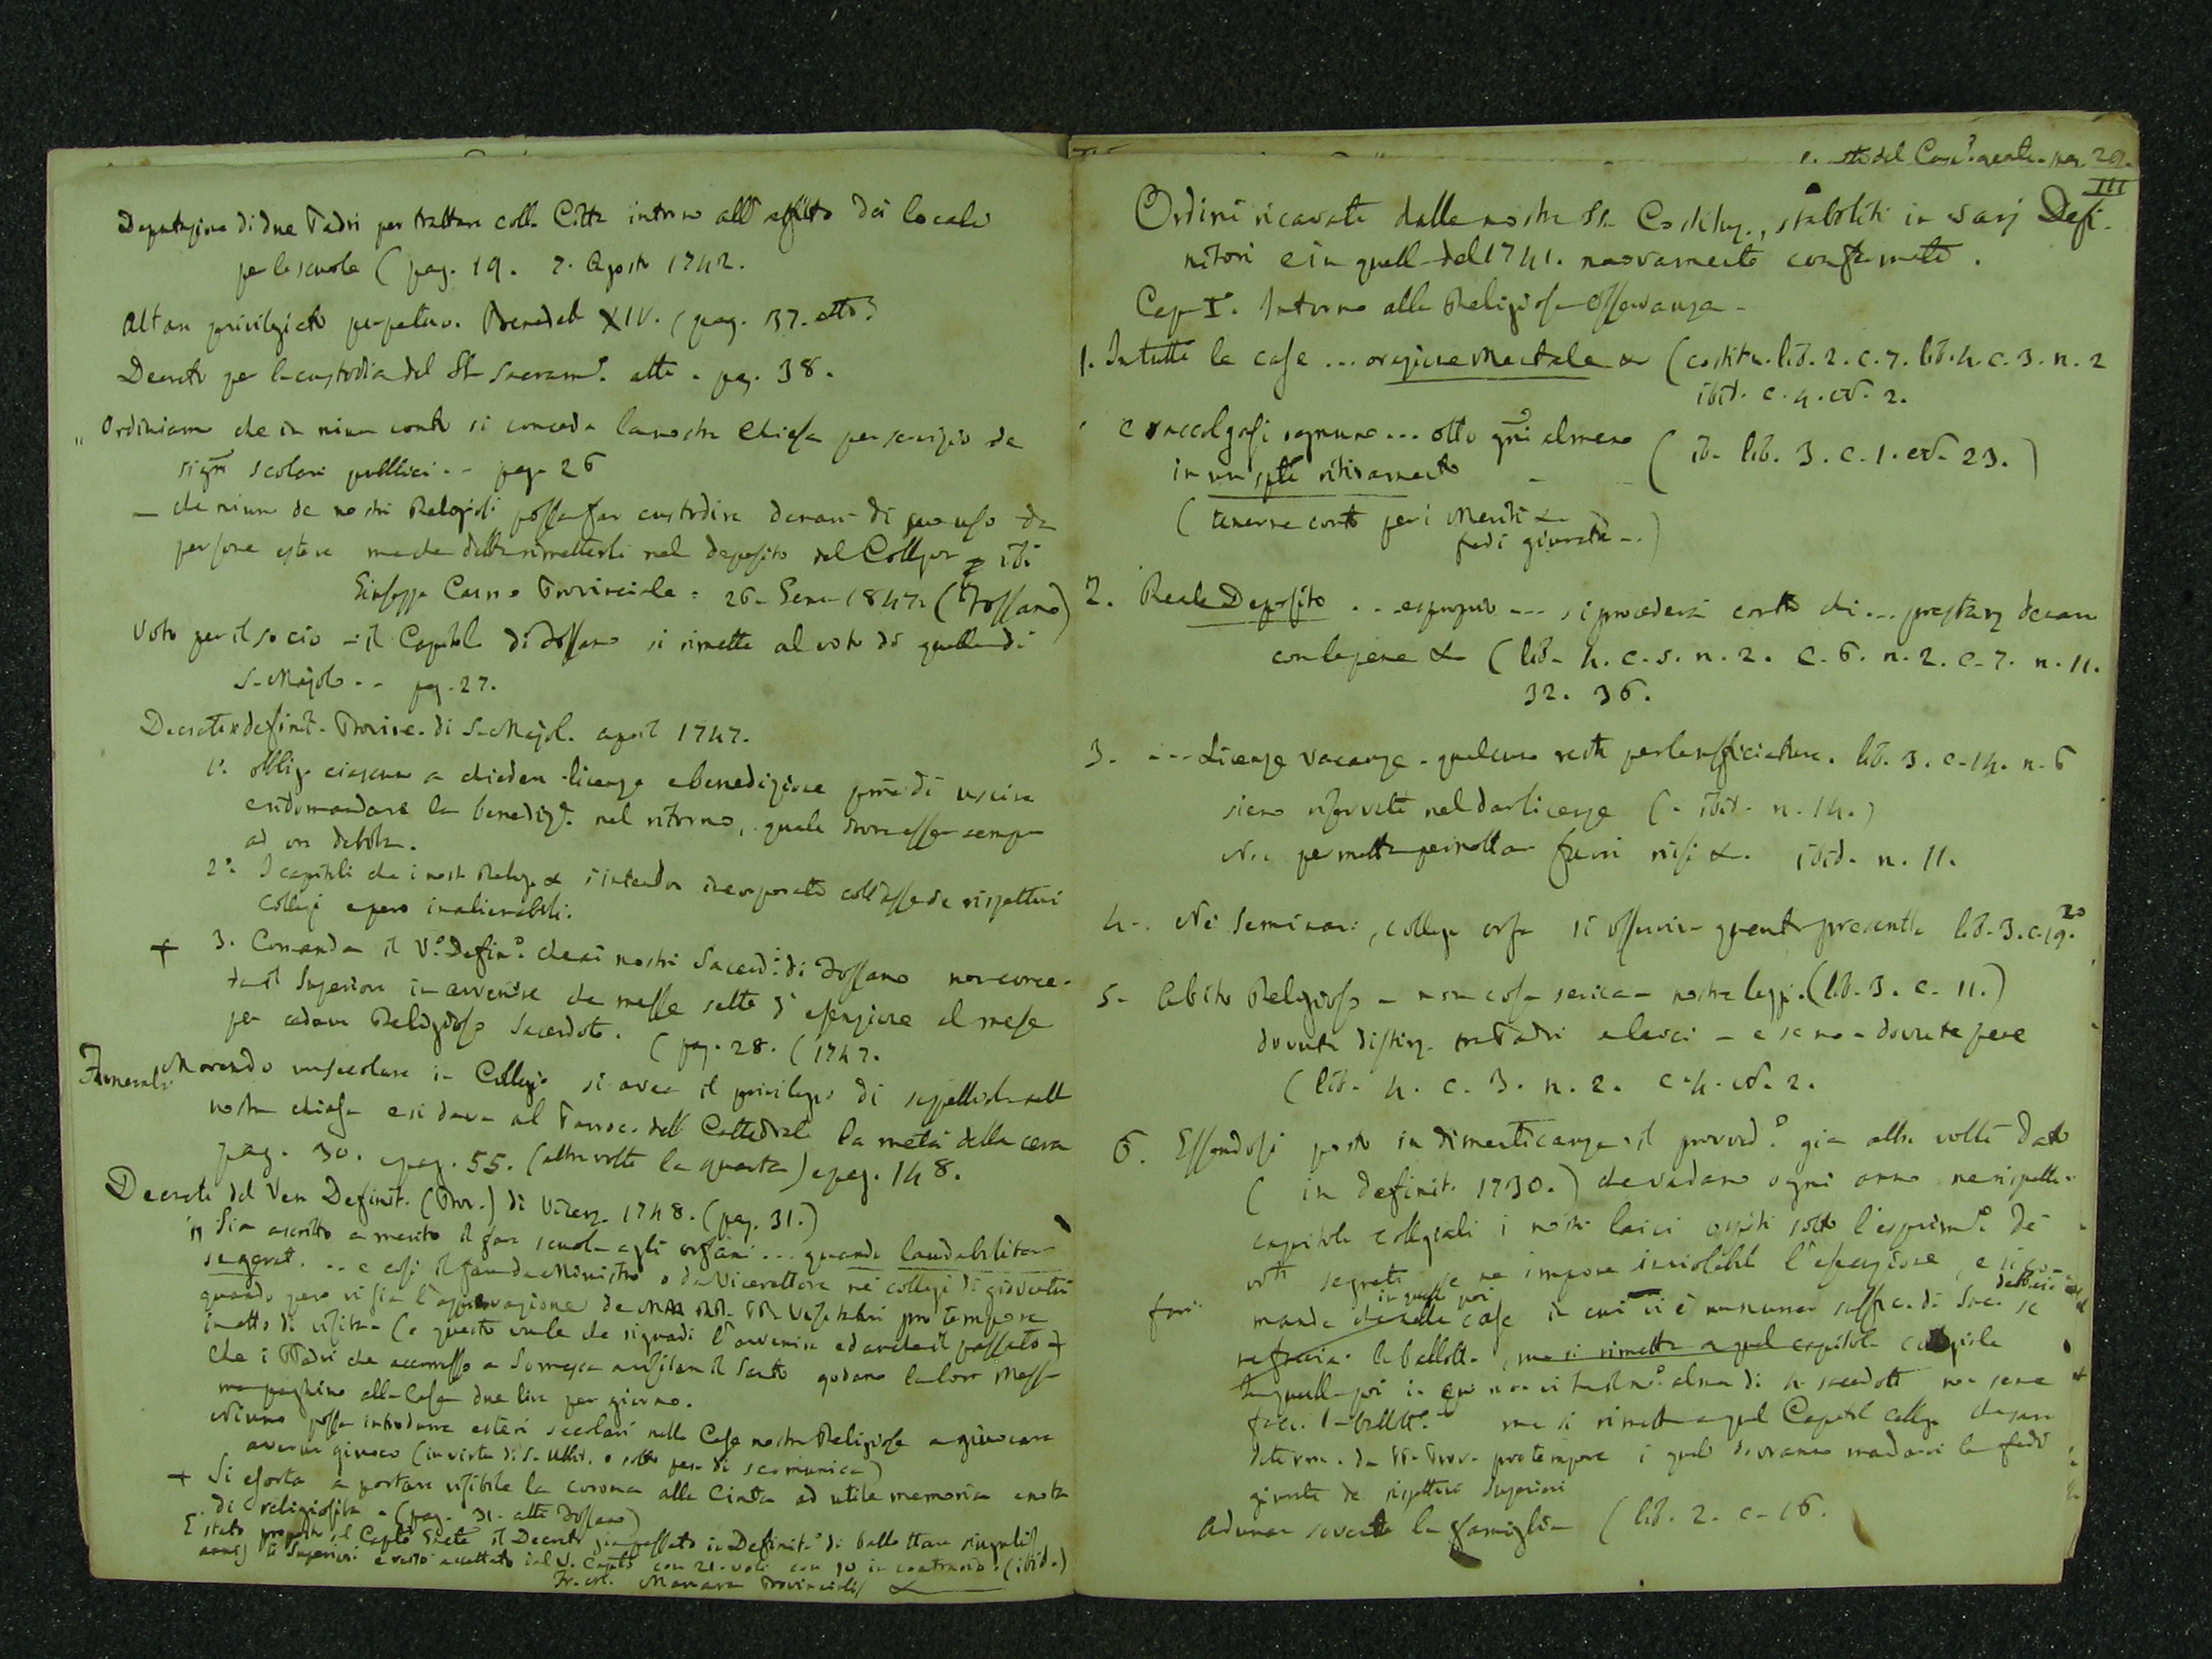 Deputazione di due Padri per trattare coll. Città intorno all' affitto dei locali
per le scuole (pag. 19. 7. Agosto 1742.
Altare privilegiato perpetuo. Benedetto XIV. (pag. 37. atti)
Decreto per la custodia del SS. Sacram.to atti. pag. 38.
„ Ordiniamo che in niun conto si conceda la nostra Chiesa per servizio de
sig.ri scolari pubblici. - pag. 26
— che niuno de nostri Religiosi possa far custodire denari di suo uso da
persone estere ma che debba rimetterli nel deposito del Collegio ibi
Giuseppe Provinciale = 26. 1747 (Fossano)
Voto per il socio - il Capitolo di Fossano si rimette al voto di quello di
S. Majolo - - pag. 27.
Decreti definit. Provinc. di S. Majol. april 1747.
1.° obbligo ciascuno a chieder licenza e benediz.ione prima di uscire
e ridomandare la benediz.e nel ritorno, quale dovrà esser sempre
ad ora debita.
2.° I capitoli che i nost. Relig. & s'intendon incorporati coll' Asse de rispettivi
Collegi e però inalienabili.
+ 3. Comanda il V.° Defin.° che ai nostri Sacerd.ti di Fossano non conce-
da il Superiore in avvenire che messe sette d' esenzione al mese
per cadaun Religioso Sacerdote. (pag. 28. (1747.
Funerali Morendo un secolare in Collegio si avea il privilegio di seppellirlo nella
nostra chiesa e si dava al Parroco della Cattedrale la metà della cera
pag. 30. e pag. 55. (altre volte la quarta) e pag. 148.
Decreti del Ven Definit. (Prov.) di Vicenz. 1748. (pag. 31.)
Sia ascritto a merito il far scuola agli orfani ... quando laudabiliter
se gerat. .. e così il fare da Ministro o da Vicerettore nei collegi di gioventù
quando però vi sia l'approvazione de M. RR. PP. Visitatori pro tempore
in atto di visita - (e questo vale che riguardi l'avvenire ed anche il passato +
che i Padri che accesso a Somasca a visitare il Santo godano la loro Messa
ma paghino alla Casa due lire per giorno.
Niuno possa introdurre esteri secolari nelle Case nostre Religiose a giuocare
a verun giuoco (in virtù di S. Ubbid. o sotto pena di scomunica)
+ Si esorta a portare visibile la corona alla Cinta ad utile memoria e nota
di religiosità. (pag. 31. atti Fossano)
È stato proposto al Capto Gnale il Decreto già passato in Definit.° di ballottare singulis
annis li Superiori è restò accettato dal V. Capto con 21. voti con 10 in contrario. (ibid.)
Provincialis &
del Cong. pag. 29.
III
Ordini ricavati dalle nostre SS. Costituz., stabiliti in varj Defi-
nitori e in quello del 1741. nuovamente confermati.
Cap I.° Intorno alla Religiosa Osservanza -
1. In tutte le case ... orazione mentale & (costitu. lib. 2. c. 7. lib. 4. c. 3. n. 2
ibid. c. 4. N. 2.
e raccolgasi ognuno ... otto gni almeno (ib. lib. 3. c. 1. N. 23.)
in un ritiramento
(tenerne conto per i Meriti &
fedi giurate -.)
2. Reale Deposito ... esproprio --- si procederà contro chi ... denari
con le pene & (lib. 4. c. 5. n. 2. c. 6. n. 2. c. 7. n. 11.
32. 36.
3. --- Licenze vacanze - qualcuno resti per l'uffiziatura. lib. 3. c. 14. n. 6
sieno riservati nel dar licenze (. ibid. n. 14.)
Non permetta pernottar fuori nisi &. ibid. n. 11.
4. Nei Seminari, collegi orfa si osservi quanto prescritto lib. 3. c. 19. 20
5. Abito Religioso - non cosa serica - nostre leggi. (lib. 3. c. 11.)
dovuta distinz. tra Padri e laici - e se no - dovute pene
(lib. 4. c. 3. n. 2. c. 4. N. 2.
6. Essendosi posto in dimenticanza il provved.° già altre volte dato
( in definit. 1730.) che vadano ogni anno ne rispetti.
capitoli collegiali i nostri laici ospiti sotto l'esperim.° de
voti segreti, se ne impone inviolabil l'esecuzione, e si co-
manda in quelle poi case in cui vi è numero suffic. di Sac. se debbasi
fari la ballott. , ma si rimetta a quel capitolo
In quelle poi in cui non vi fusse n.° almen di 4 sacedoti non sene
faci. l-ballott.e ma si rimetta a quel Capitol collegi
determ. da PP. Prov. pro tempore i quali dovranno mandarsi le fedi
giurate de rispettivi Superiori
Adunar sovente la famiglia (lib. 2. c. 16.